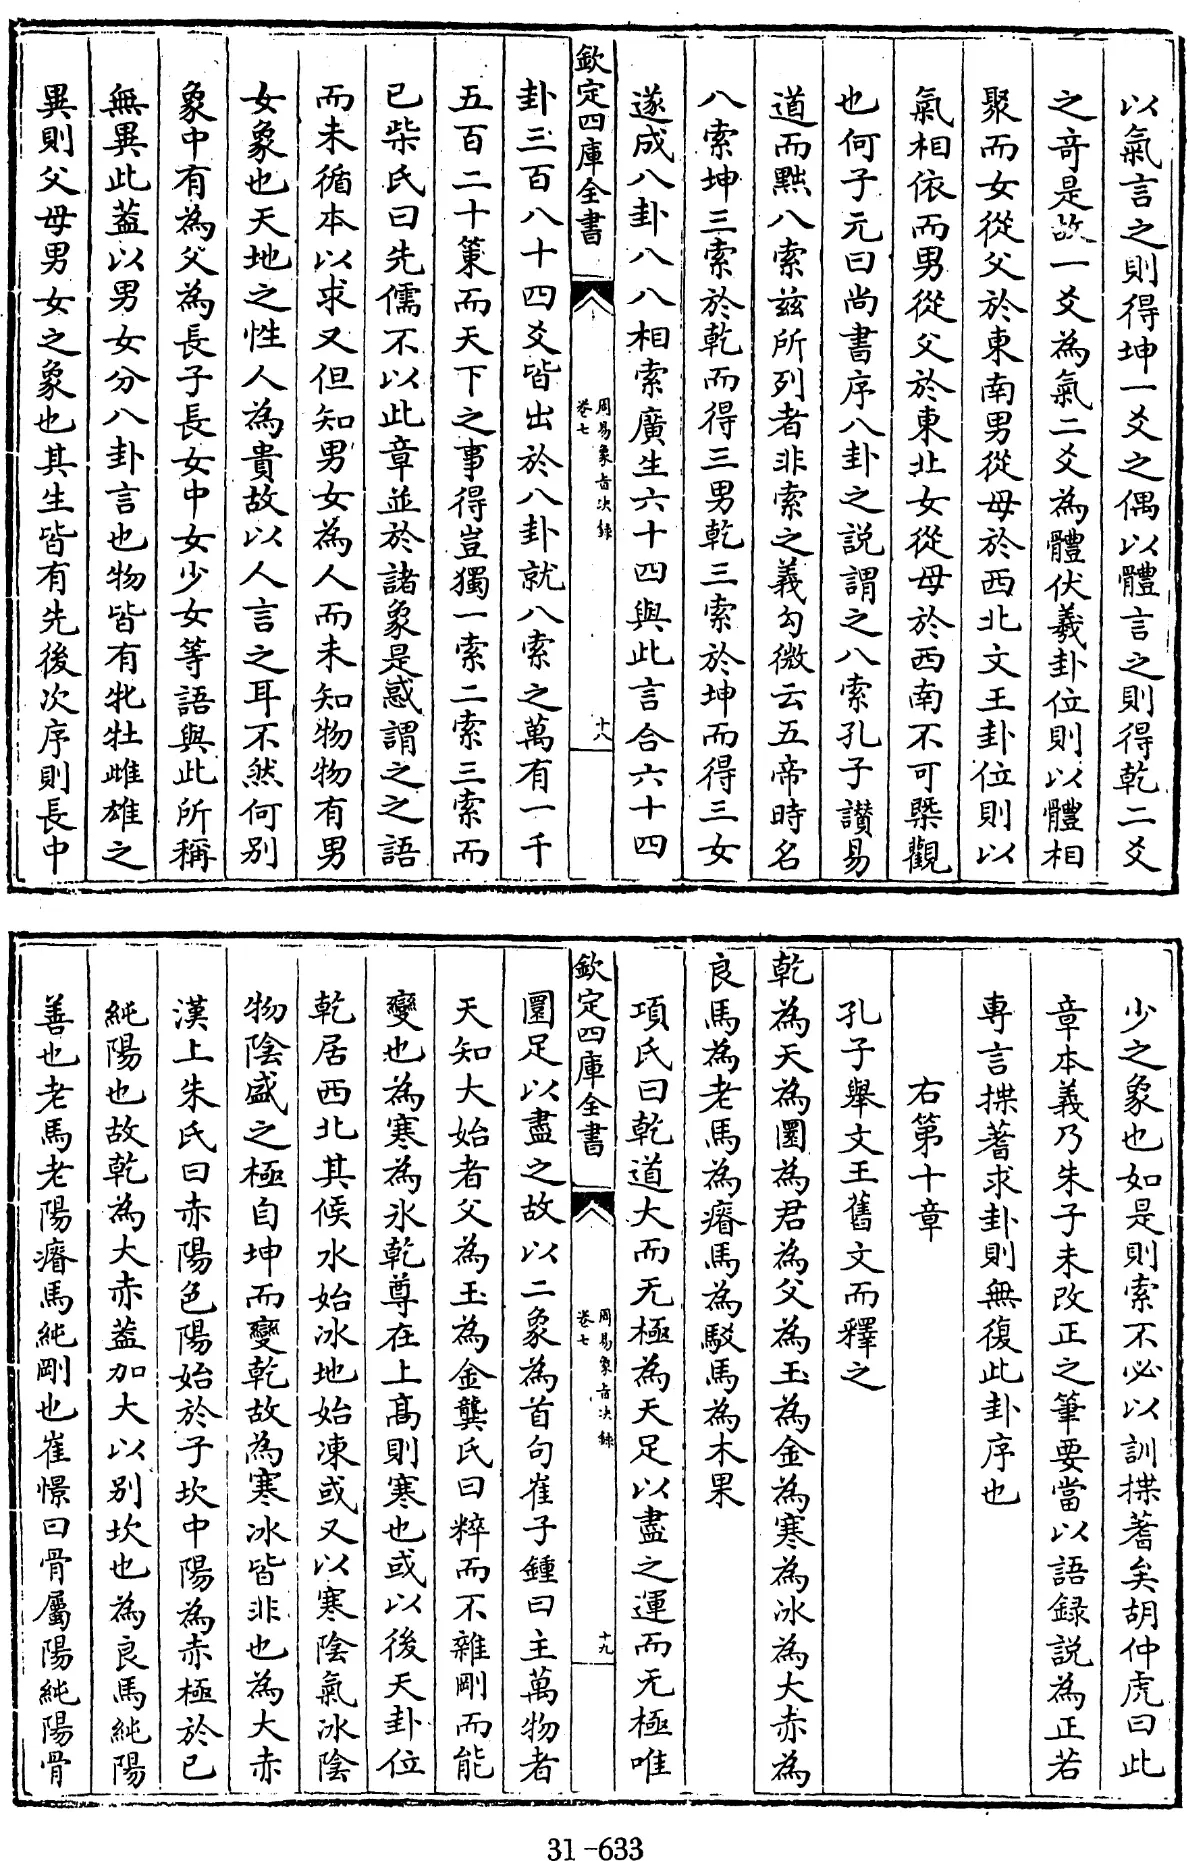 以氣言之則得坤一爻之偶以體言之則得乾二爻
之奇是故一爻為氣二爻為體伏羲卦位則以體相
聚而女從父於東南男從母於西北文王卦位則以
氣相依而男從父於東北女從母於西南不可槩觀
也何子元曰尚書序八卦之説謂之八索孔子讃易
道而黜八索兹所列者非索之義勾微云五帝時名
八索坤三索於乾而得三男乾三索於坤而得三女
遂成八卦八八相索廣生六十四與此言合六十四
欽定四庫全書
周易象旨決録
卷七
十八
卦三百八十四爻皆出於八卦就八索之萬有一千
五百二十策而天下之事得豈獨一索二索三索而
已柴氏曰先儒不以此章並於諸象是惑謂之之語
而未循本以求又但知男女為人而未知物物有男
女象也天地之性人為貴故以人言之耳不然何别
象中有為父為長子長女中女少女等語與此所稱
無異此葢以男女分八卦言也物皆有牝牡雌雄之
異則父母男女之象也其生皆有先後次序則長中
少之象也如是則索不必以訓揲蓍矣胡仲虎曰此
章本義乃朱子未改正之筆要當以語録説為正若
專言揲蓍求卦則無復此卦序也
右第十章
孔子舉文王舊文而釋之
乾為天為圜為君為父為玉為金為寒為冰為大赤為
良馬為老馬為瘠馬為駁馬為木果
項氏曰乾道大而无極為天足以盡之運而无極唯
欽定四庫全書
周易象旨決録
卷七
十九
圜足以盡之故以二象為首句崔子鍾曰主萬物者
天知大始者父為玉為金龔氏曰粹而不雜剛而能
變也為寒為氷乾尊在上髙則寒也或以後天卦位
乾居西北其候水始冰地始凍或又以寒陰氣冰陰
物陰盛之極自坤而變乾故為寒冰皆非也為大赤
漢上朱氏曰赤陽色陽始於子坎中陽為赤極於已
純陽也故乾為大赤葢加大以别坎也為良馬純陽
善也老馬老陽瘠馬純剛也崔憬曰骨屬陽純陽骨
31-633